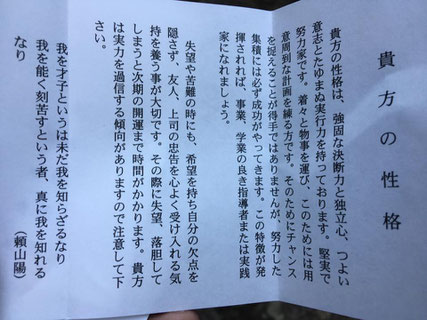 貴方の性格
貴方の性格は、強固な決断力と独立心、つよい
意志とたゆまぬ実行力を持っております。堅実で
努力家です。着々と物事を運び、このためには用
意周到な計画を練る方です。そのためにチャンス
を捉えることが得手ではありませんが、努力した
集積には必ず成功がやってきます。この特徴が発
揮されれば、事業、学業の良き指導者または実践
家になれましょう。
失望や苦難の時にも、希望を持ち自分の欠点を
隠さず、友人、上司の忠告を心よく受け入れる気
持を養う事が大切です。その際に失望、落胆して
しまうと次期の開運まで時間がかかります。貴方
は実力を過信する傾向がありますので注意して下
さい。
我を才子というは未だ我を知らざるなり
我を能く刻苦すという者、真に我を知れる
なり
(頼山陽)